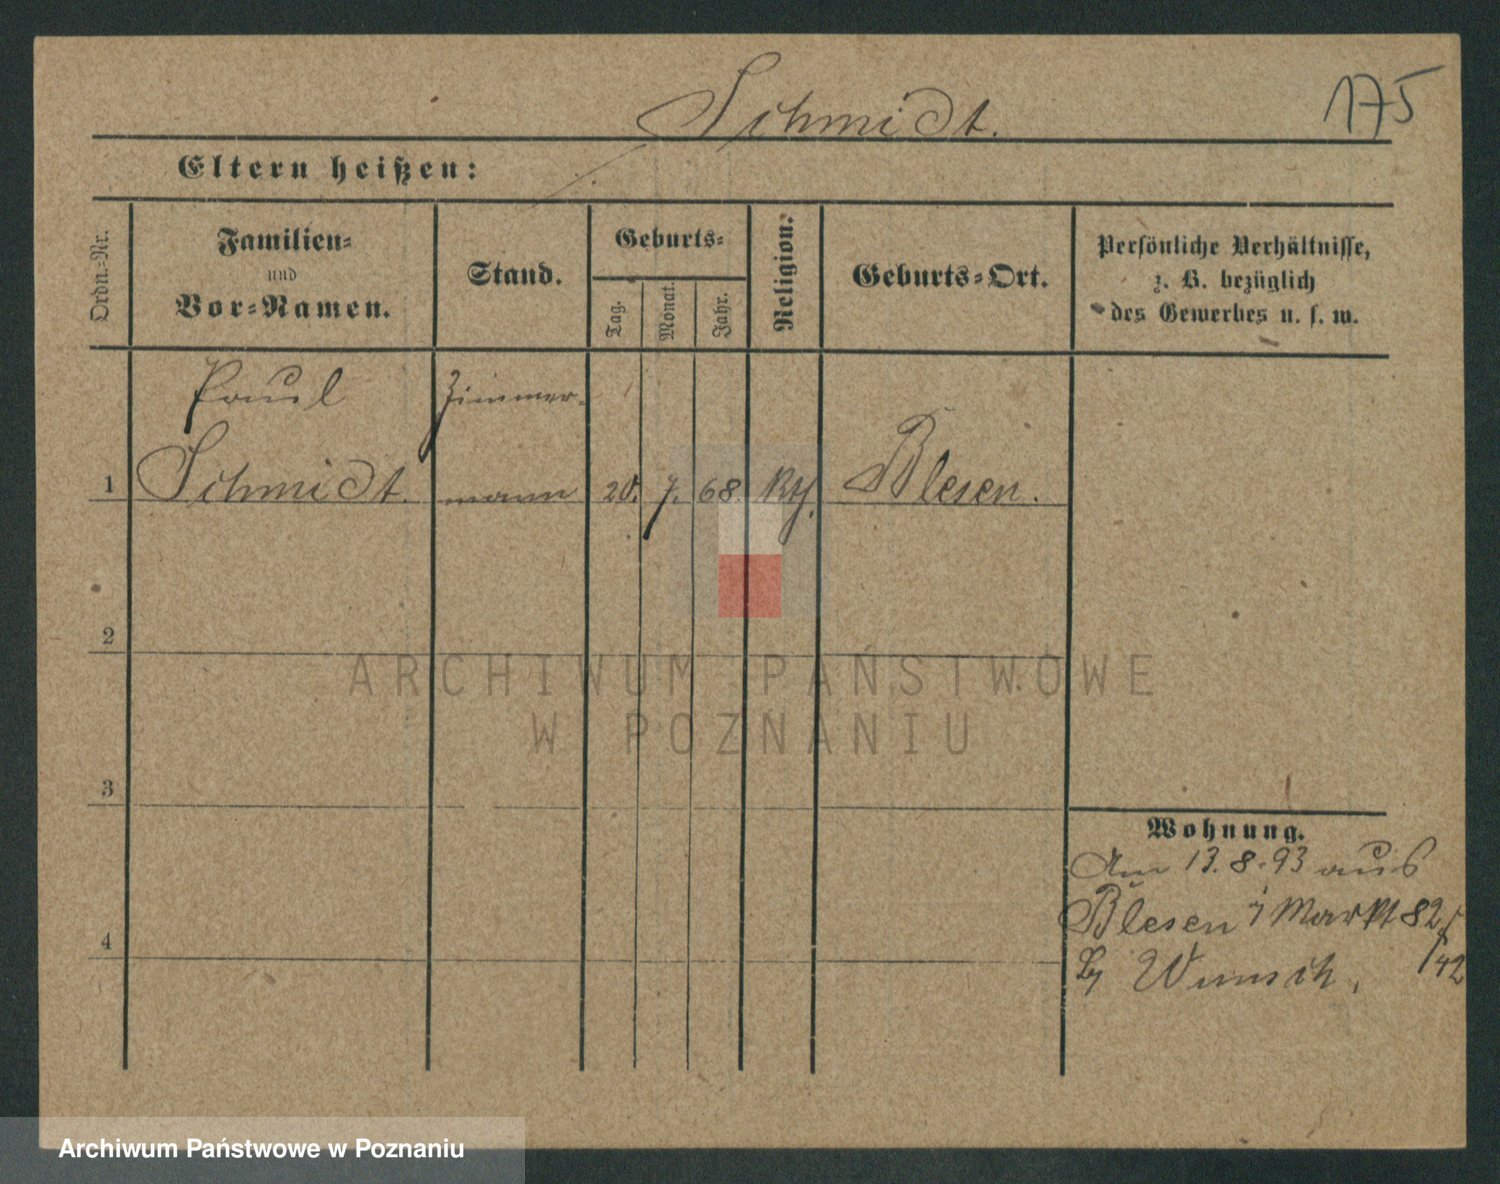 Schmidt.
175
Eltern heißen:
Ordn.-Nr.
Familien-
und
Vor-Namen.
Stand.
Geburts-
Tag.
Monat.
Jahr.
Religion.
Geburts-Ort.
Persönliche Verhältnisse,
z. B. bezüglich
des Gewerbes u. s. w.
Paul Zimmer-
1 Schmidt. mann 20. 7. 68. Blesen.
2
3
4
Wohnung.
Am 13.8.93 aus
Blesen Markt 82
/42
Wunsch.
ARCHIWUM PAŃSTWOWE
W POZNANIU
Archiwum Państwowe w Poznaniu